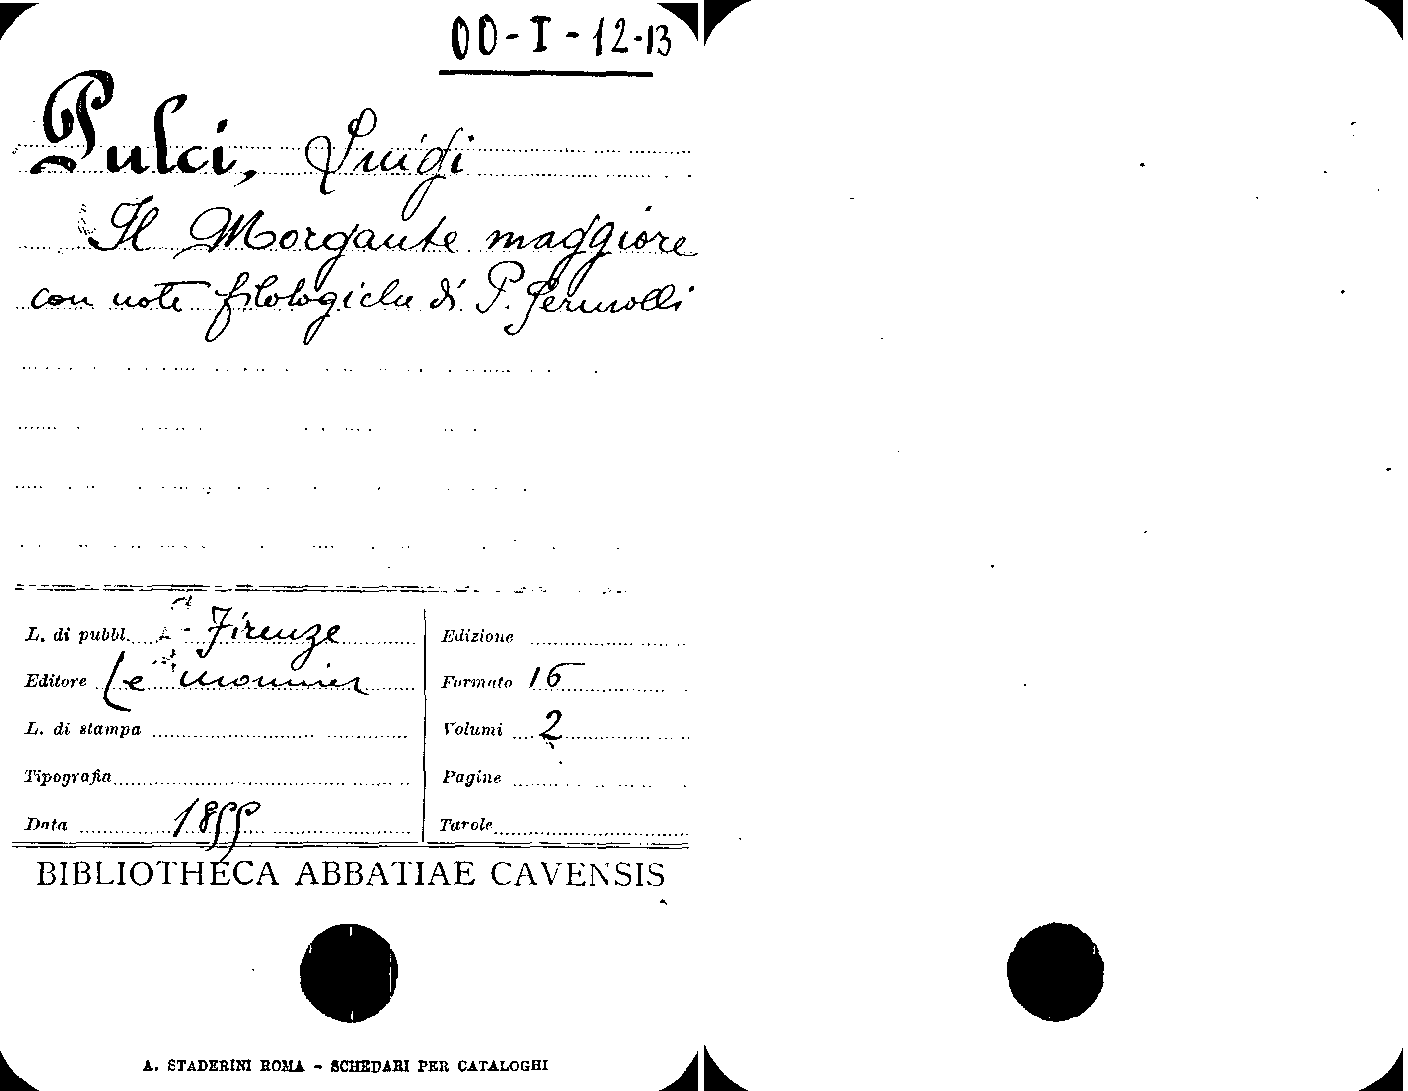 OO-I-12-13
Pulci, Luigi
Il Morgante maggiore
con note filologiche di P. Sermolli
L. di pubbl. Firenze
Editore Le monnier
L. di stampa
Tipografia
Data 1855
Edizione
Formato 16
Volumi 2
Pagine
Tavole
BIBLIOTHECA ABBATIAE CAVENSIS
A. STADERINI ROMA - SCHEDARI PER CATALOGHI